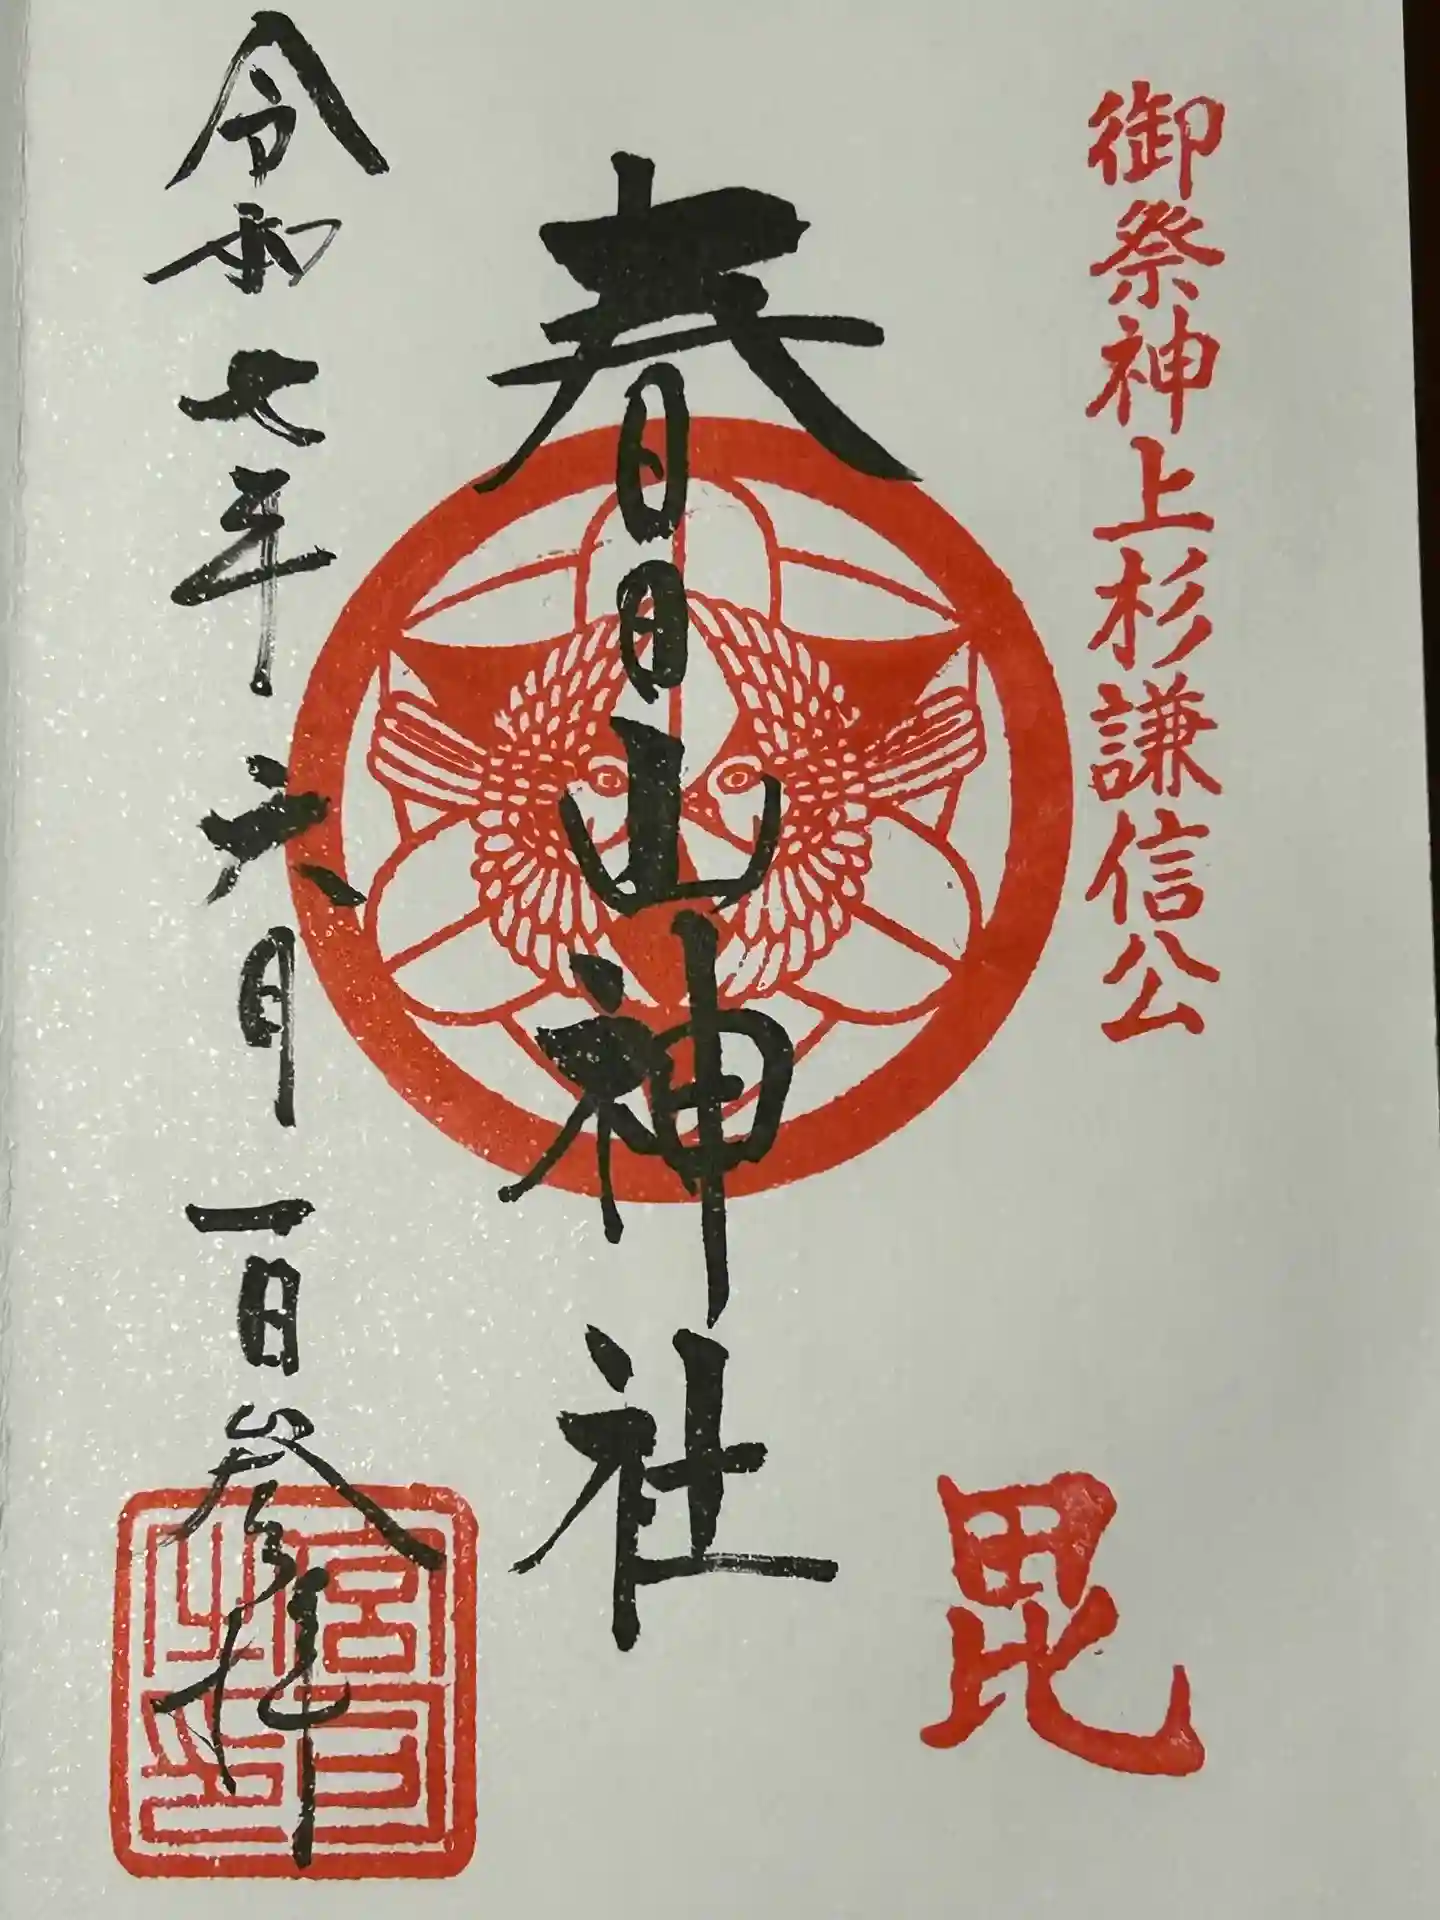 御祭神上杉謙信公
毘
春日山神社
令和七年六月一日参拝
宮司之印